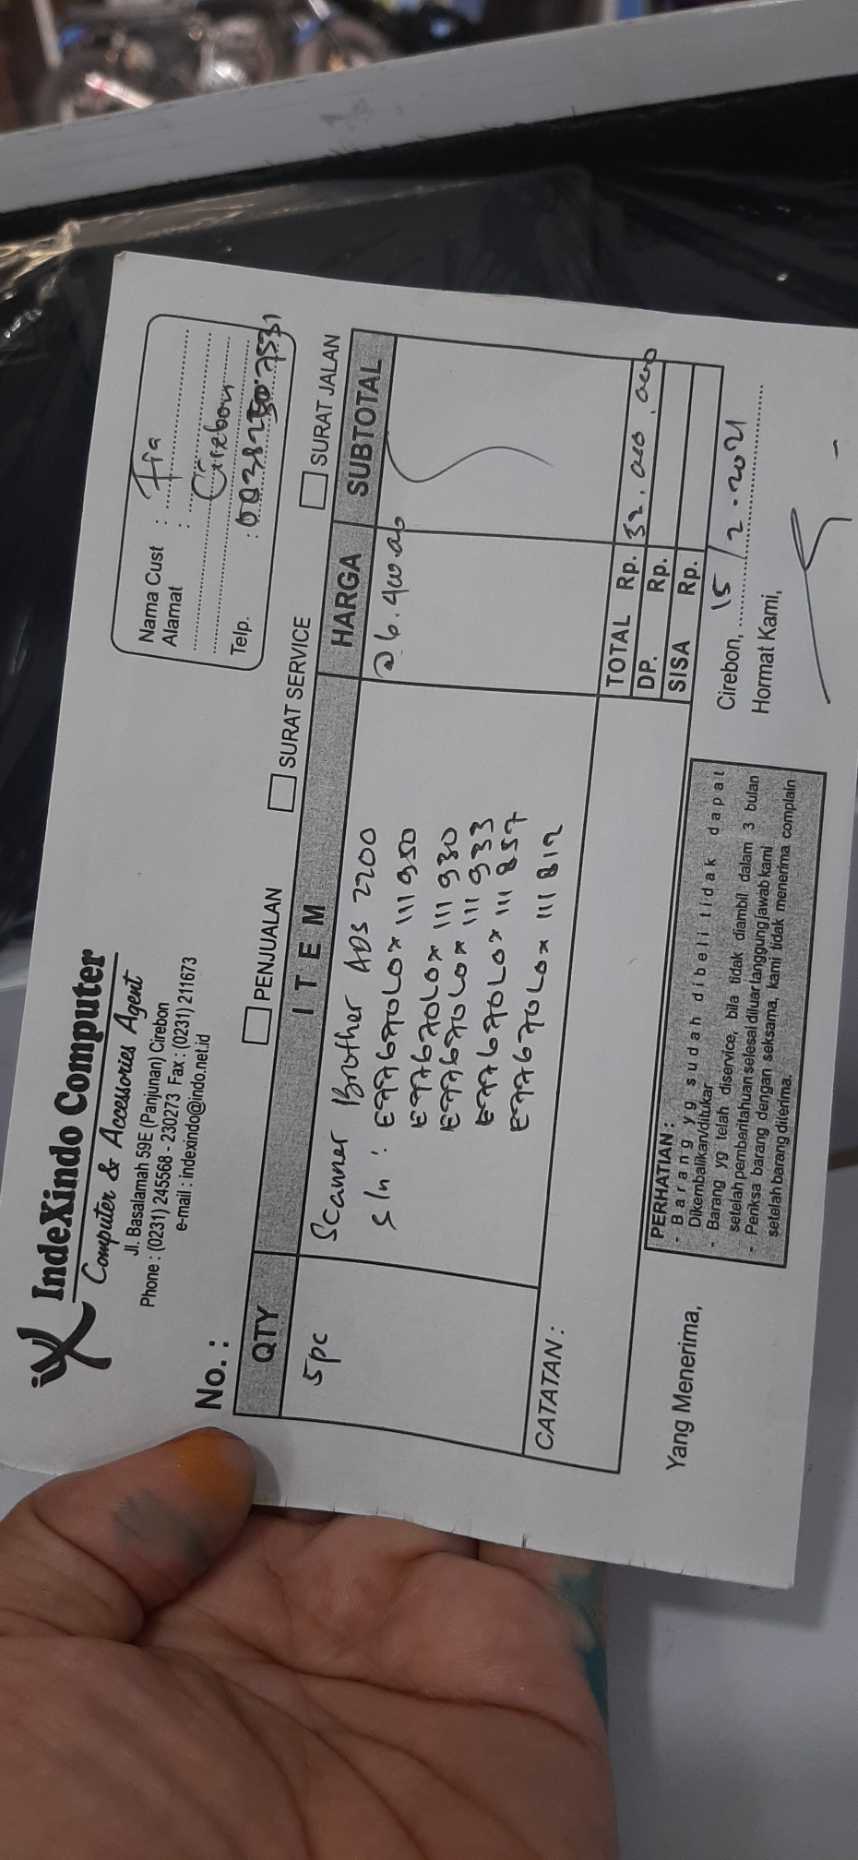 IndeXindo Computer
Computer & Accessories Agent
Jl. Basalamah 59E (Panjunan) Cirebon
Phone : (0231) 245568 - 230273 Fax : (0231) 211673
e-mail : indexindo@indo.net.id
Nama Cust :
Alamat : Cirebon
Telp. :
No. :
PENJUALAN SURAT SERVICE SURAT JALAN
QTY ITEM HARGA SUBTOTAL
5pc Scanner Brother ADS 2200 @6.400.000
S/n : E77670L0x111950
E77670L0x111930
E77670L0x111933
E77670L0x111857
E77670L0x111812
CATATAN :
TOTAL Rp. 32.000.000
DP. Rp.
SISA Rp.
PERHATIAN :
- Barang yg sudah dibeli tidak dapat
Dikembalikan/ditukar
- Barang yg telah diservice, bila tidak diambil dalam 3 bulan
setelah pemberitahuan selesai diluar tanggung jawab kami
- Periksa barang dengan seksama, kami tidak menerima complain
setelah barang diterima.
Cirebon, 15/2.2021
Yang Menerima,
Hormat Kami,